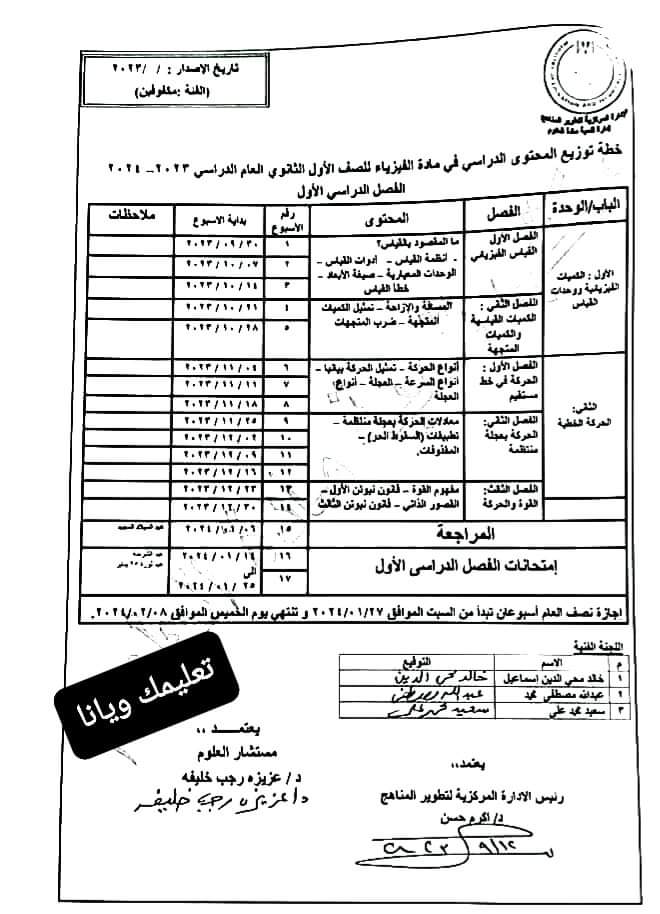 تاريخ الاصدار : / /٢٠٢٣
(الفئة :مكفوفين)
الادارة المركزية لتطوير المناهج
خطة توزيع المحتوى الدراسي في مادة الفيزياء للصف الأول الثانوي العام الدراسي ٢٠٢٣ – ٢٠٢٤
الفصل الدراسي الأول
الباب/الوحدة الفصل المحتوى رقم الأسبوع بداية الاسبوع ملاحظات
الأول : الكميات الفيزيائية ووحدات القياس
الفصل الأول القياس الفيزيائي
ما المقصود بالقياس؟
- أنظمة القياس – أدوات القياس –
الوحدات المعيارية – صيغة الأبعاد –
خطأ القياس
١ ٢٠٢٣/٠٩/٣٠
٢ ٢٠٢٣/١٠/٠٧
٣ ٢٠٢٣/١٠/١٤
الفصل الثاني : الكميات القياسية والكميات المتجهة
المسافة والإزاحة – تمثيل الكميات
المتجهة – ضرب المتجهات
٤ ٢٠٢٣/١٠/٢١
٥ ٢٠٢٣/١٠/٢٨
الثاني: الحركة الخطية
الفصل الأول: الحركة في خط مستقيم
أنواع الحركة – تمثيل الحركة بيانيا –
أنواع السرعة – العجلة – أنواع
العجلة
٦ ٢٠٢٣/١١/٠٤
٧ ٢٠٢٣/١١/١١
٨ ٢٠٢٣/١١/١٨
الفصل الثاني: الحركة بعجلة منتظمة
معادلات الحركة بعجلة منتظمة –
تطبيقات (السقوط الحر) –
المقذوفات.
٩ ٢٠٢٣/١١/٢٥
١٠ ٢٠٢٣/١٢/٠٢
١١ ٢٠٢٣/١٢/٠٩
١٢ ٢٠٢٣/١٢/١٦
الفصل الثالث: القوة والحركة
مفهوم القوة – قانون نيوتن الأول –
القصور الذاتي – قانون نيوتن الثالث
١٣ ٢٠٢٣/١٢/٢٣
١٤ ٢٠٢٣/١٢/٣٠
المراجعة ١٥ ٢٠٢٤/٠١/٠٦ عيد الميلاد المجيد
إمتحانات الفصل الدراسي الأول
١٦ ٢٠٢٤/٠١/١٤
الى
١٧ ٢٠٢٤/٠١/٢٥
عيد الشرطة
عيد ثورة ٢٥ يناير
اجازة نصف العام أسبوعان تبدأ من السبت الموافق ٢٠٢٤/٠١/٢٧ و تنتهي يوم الخميس الموافق ٢٠٢٤/٠٢/٠٨.
اللجنة الفنية
م الاسم التوقيع
١ خالد محي الدين إسماعيل خالد محي الدين
٢ عبدالله مصطفى محمد عبدالله مصطفى
٣ سعيد محمد على سعيد محمد على
تعليمك ويانا
يعتمـــد ،،
مستشار العلوم
د/ عزيزه رجب خليفه
د/عزيزه رجب خليفه
يعتمد،،
رئيس الادارة المركزية لتطوير المناهج
د/ اكرم حسن